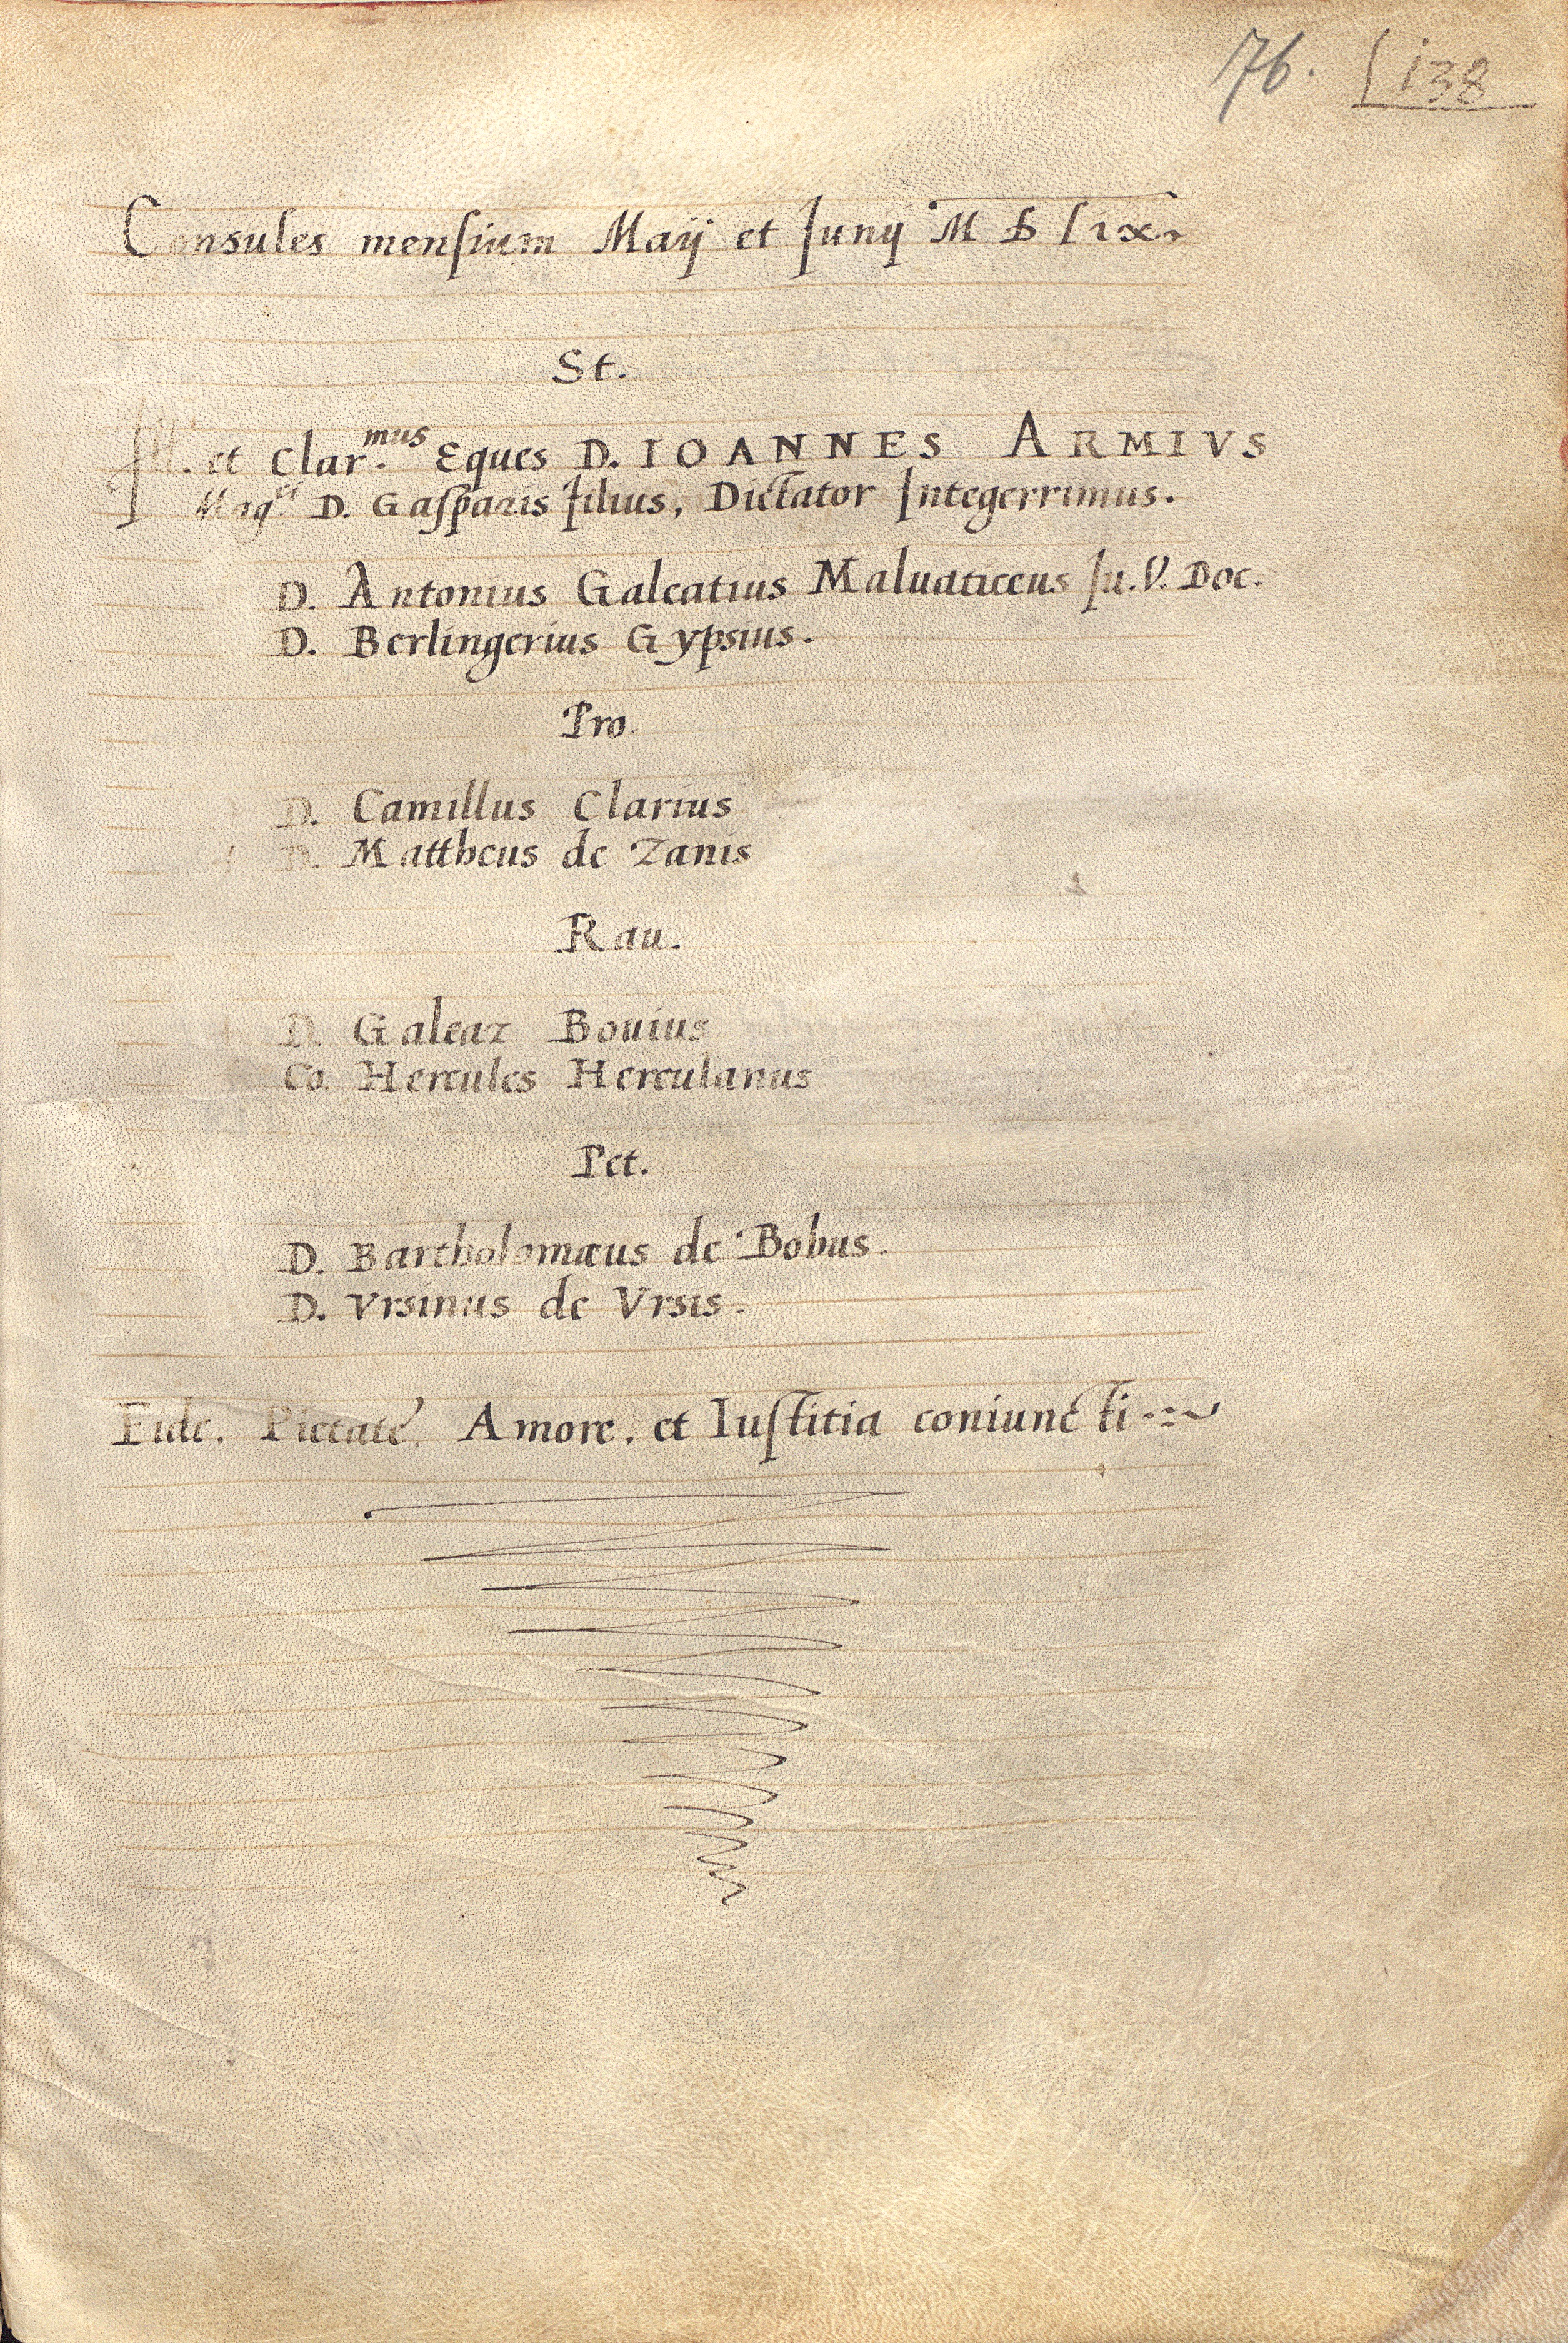 76. 138
Consules mensium Maij et Junij M D Lix.
St.
Ill. et Clar.mus Eques D. IOANNES ARMIVS
Mag.ci D. Gasparis filius, Dictator Integerrimus.
D. Antonius Galeatius Maluaticeus Iu. V. Doc.
D. Berlingerius Gypsius.
Pro.
D. Camillus Clarius
D. Mattheus de Zanis
Rau.
D. Galeaz Bouius
Co. Hercules Herculanus
Pet.
D. Bartholomæus de Bobus.
D. Vrsinus de Vrsis.
Fide. Pietate, Amore. et Iustitia coniuncti